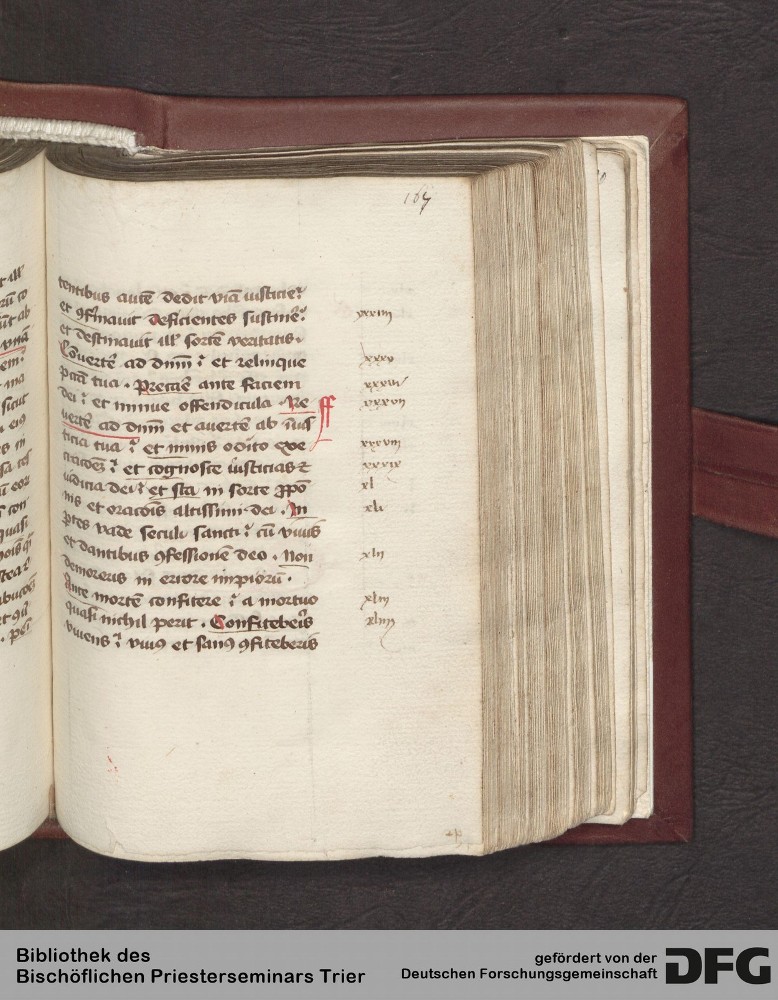 167
tentibus autē dedit viā iusticie
et ꝯfirmauit deficientes sustinē
et destinauit ill' sortē veritatis.
Cōuertē ad dnm̄ et relinque
pccā tua. Precare ante faciem
dei et minue offendicula. Re
uertē ad dnm̄ et auertē ab īius
ticia tua et nimis odito exe
cracōēz et cognosce iusticias et
iudicia dei et sta in sorte ꝓpō
nis et oracōīs altissimi dei. In
ptes vade seculi sancti cū viuis
et dantibus ꝯfessionē deo. Non
demoreris in errore impiorū.
Ante mortē confitere a mortuo
quasi nichil perit. Confiteberis
viuens viuꝰ et sanꝰ ꝯfiteberis
xxxiiij
xxxv
xxxvi
xxxvij
xxxviij
xxxix
xl
xli
xlij
xliij
xliiij
Bibliothek des
Bischöflichen Priesterseminars Trier
gefördert von der
Deutschen Forschungsgemeinschaft
DFG